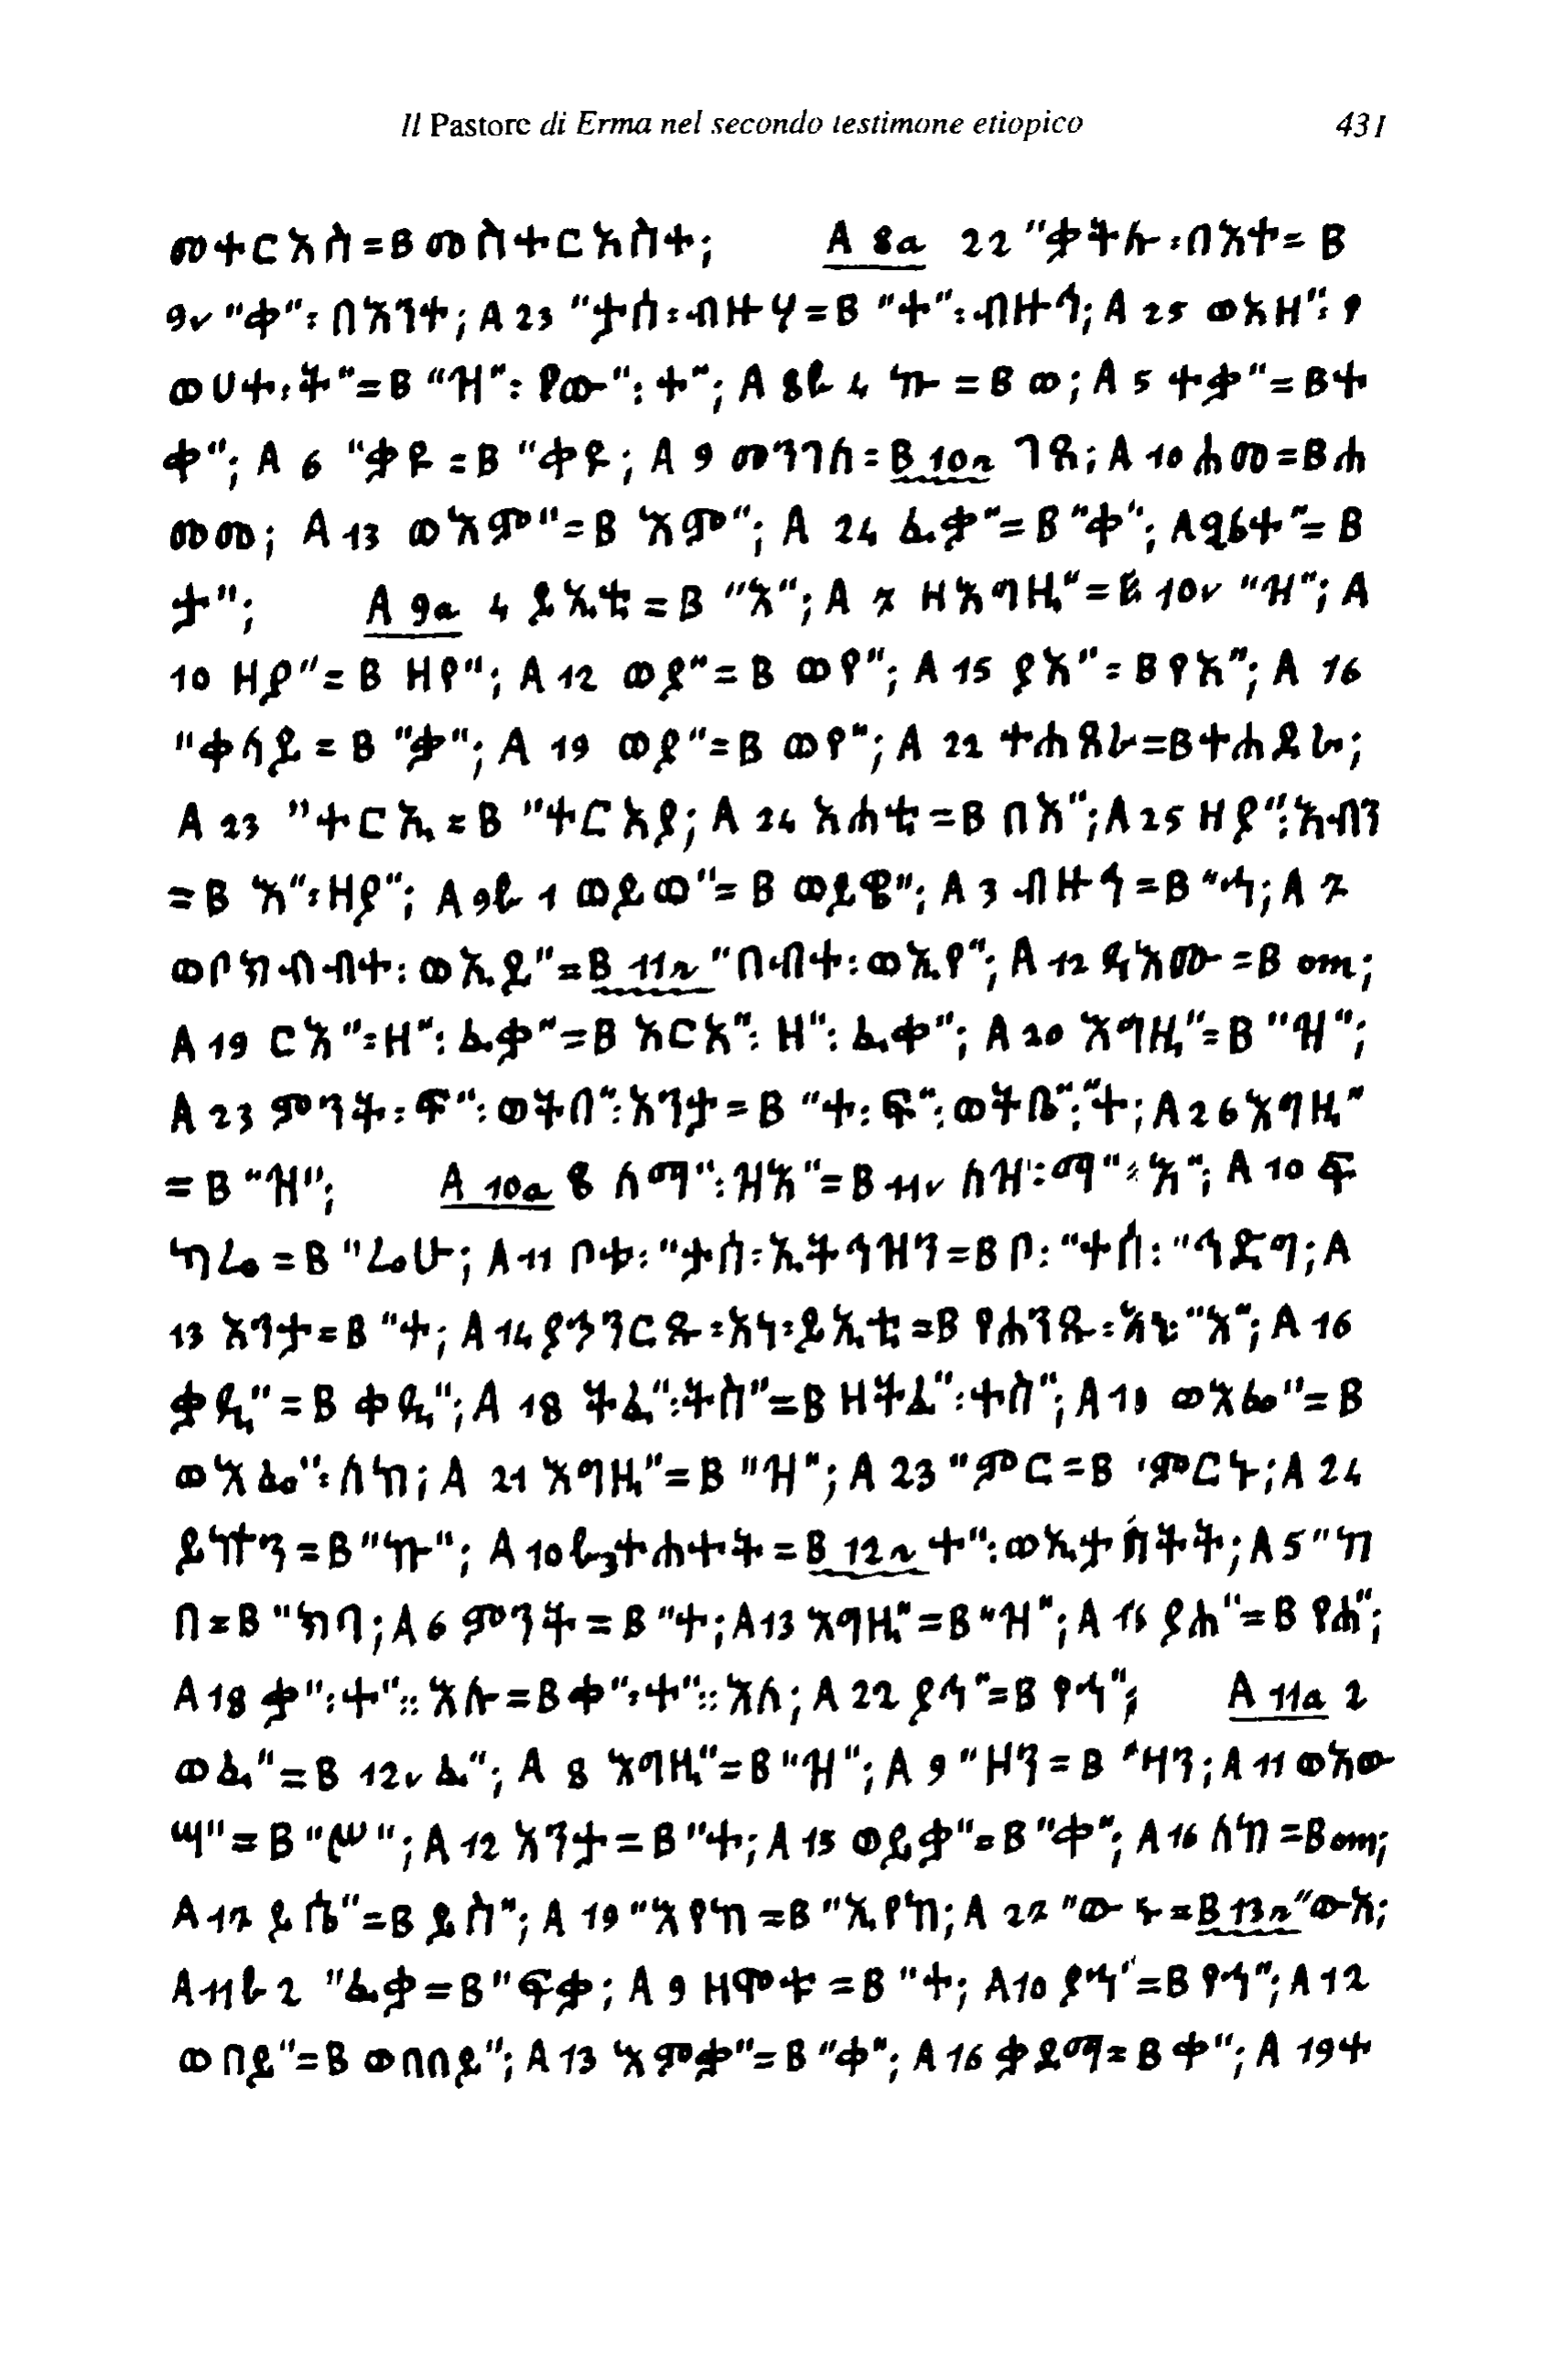 Il Pastore di Erma nel secondo testimone etiopico 431
መተርእስ = B መስተርእስተ; A 8a 22 "ቃትሉ፡በእተ = B
9v "ቀ"፡ በእንተ; A 23 "ታሰ፡ብዙሃ = B "ተ"፡ብዙኅ; A 25 ወእዘ"፡ የ
ወሀተ፡ት" = B "ዝ"፡ የው"፡ ተ"; A 8b 4 ኵ = B ወ; A 5 ተቃ" = B ተ
ቀ"; A 6 "ቃዩ = B "ቀዩ; A 9 መንገለ = B 10r ገጸ; A 10 ሐመ = B ሐ
መመ; A 13 ወእም" = B እም"; A 24 ፈቃ" = B "ቀ"; A 26 ተ" = B
ታ"; A 9a 4 ይእቲ = B "እ"; A 7 ዘእግዚ" = B 10v "ዝ"; A
10 ዘያ" = B ዘየ"; A 12 ወያ" = B ወየ"; A 15 ያአ" = B የአ"; A 16
"ቀሳይ = B "ቃ"; A 19 ወያ" = B ወየ"; A 22 ተሐጸራ = B ተሐይራ;
A 23 "ተርኢ = B "ተርእያ; A 24 አሐቲ = B በአ"; A 25 ዘያ"፡እብን
= B እ"፡ዘያ"; A 9b 1 ወይወ" = B ወይዌ"; A 3 ብዙኅ = B "ኃ; A 7
ወቦክብብተ፡ወኢይ" = B 11r "በብተ፡ወኢየ"; A 12 ዲእሙ = B om;
A 19 ርእ"፡ዘ"፡ ፈቃ" = B አርአ"፡ ዘ"፡ ፈቀ"; A 20 እግዚ" = B "ዝ";
A 23 ምንት፡ፍ"፡ወትበ"፡እንታ = B "ተ፡ፍ"፡ወትቤ"፡"ተ; A 26 እግዚ"
= B "ዝ"; A 10a 8 ለማ"፡ዝእ" = B 11v ለዝ፡ማ"፡እ"; A 10 ፍ
ካሬ = B "ሬሁ; A 11 ቦቱ፡"ታሰ፡ኢትኅዝን = B ቦ፡"ተሰ፡"ኅድግ; A
13 እንታ = B "ተ; A 14 ያንንርጹ፡እነ፡ይእቲ = B የሐንጹ፡እኔ፡"እ"; A 16
ቃዲ" = B ቀዲ"; A 18 ትፈ"፡ትስ" = B ዘትፈ"፡ተስ"; A 19 ወእፎ" = B
ወእፎ"፡ለከ; A 21 እግዚ" = B "ዝ"; A 23 "ምር = B "ምርኑ; A 24
ይኸን = B "ኵ"; A 10b 3 ተሐተት = B 12r ተ"፡ወኢታስትት; A 5 "ከ
በ = B "ክባ; A 6 ምንት = B "ተ; A 13 እግዚ" = B "ዝ"; A 15 ያሐ" = B የሐ";
A 18 ቃ"፡ተ"። እሉ = B ቀ"፡ተ"። እለ; A 22 ያኃ" = B የኃ"; A 11a 2
ወፈ" = B 12v ፈ"; A 8 እግዚ" = B "ዝ"; A 9 "ዘን = B "ዛን; A 11 ወአው
ሣ" = B "ሠ"; A 12 እንታ = B "ተ; A 15 ወይቃ" = B "ቀ"; A 16 ለከ = B om;
A 17 ይሴ" = B ይስ"; A 19 "እየከ = B "ኢየከ; A 22 "ው ኑ = B 13r "ውእ;
A 11b 2 "ፈቃ = B "ፍቃ; A 9 ዘሞቱ = B "ተ; A 10 ያኃ" = B የኃ"; A 12
ወበይ" = B ወበበይ"; A 13 እምቃ" = B "ቀ"; A 16 ቃይማ = B ቀ"; A 19 ተ